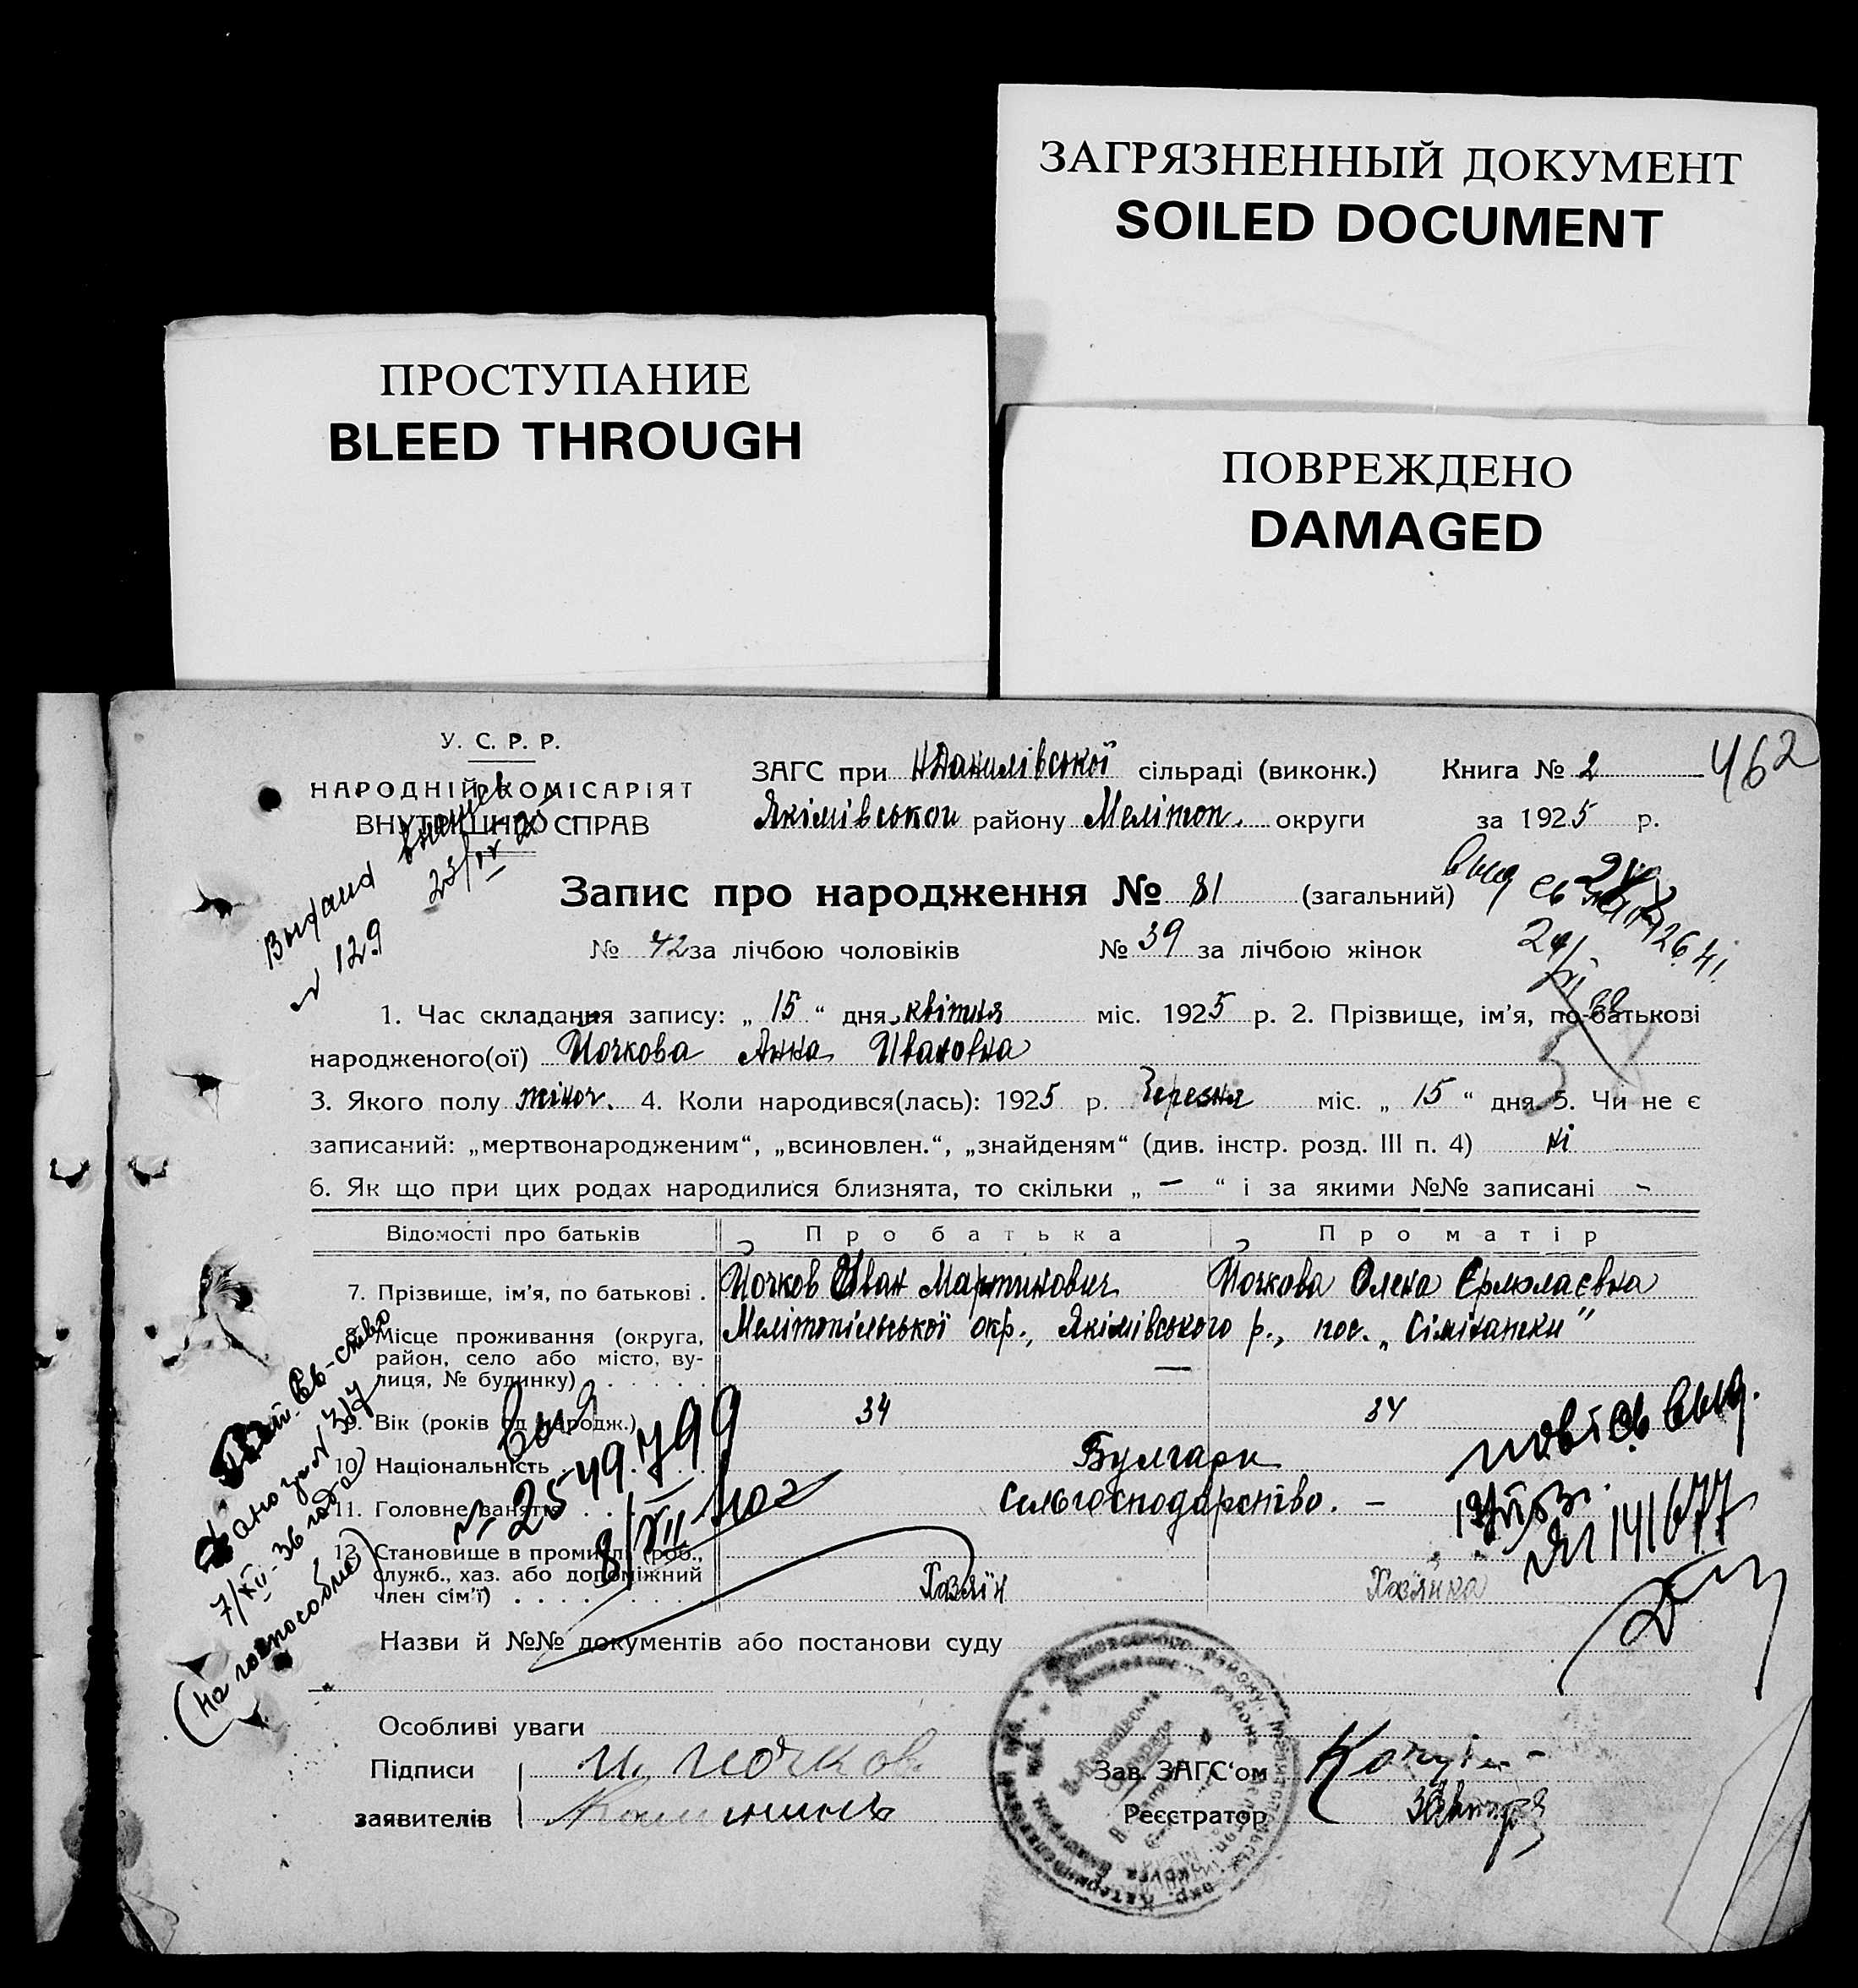 ЗАГРЯЗНЕННЫЙ ДОКУМЕНТ
SOILED DOCUMENT
ПРОСТУПАНИЕ
BLEED THROUGH
ПОВРЕЖДЕНО
DAMAGED
462
У. С. Р. Р.
НАРОДНІЙ КОМІСАРІЯТ
ВНУТРІШНІХ СПРАВ
ЗАГС при Н Данилівської сільраді (виконк.) Книга № 2
Якімівської району Меліт‌оп. округи за 1925 р.
Запис про народження № 81 (загальний)
№ 42 за лічбою чоловіків № 39 за лічбою жінок
Выдана
№ 129
1. Час складання запису: „ 15 “ дня квітня міс. 1925 р. 2. Прізвище, ім'я, по-батькові
народженого(ої) Йочкова Анна Ивановна
3. Якого полу жіноч. 4. Коли народився(лась): 1925 р. березня міс. „ 15 “ дня 5. Чи не є
записаний: „мертвонародженим“, „всиновлен.“, „знайденям“ (див. інстр. розд. III п. 4) ні
6. Як що при цих родах народилися близнята, то скільки „ — “ і за якими №№ записані -
Відомості про батьків Про батька Про матір
7. Прізвище, ім'я, по батькові . Йочков Иван Мартинович Йочкова Олена Єрмолаєвна
8. Місце проживання (округа, район, село або місто, вулиця, № будинку) Мелітопільської окр., Якімівського р., пос. „Сімітантки"
9. Вік (років од народж.) 34 34
10. Національність Булгари
11. Головне заняття Сельгосподарство. —
12. Становище в промислі (роб., служб., хаз. або допоміжний член сім'ї) Хазяїн Хазяйка
№ 317
7/XII-36 года
(на госпособие)
8/XII
повт св выд.
141677
Назви й №№ документів або постанови суду
Особливі уваги
Підписи И. Йочков
заявителів
Зав. ЗАГС'ом
Реєстратор